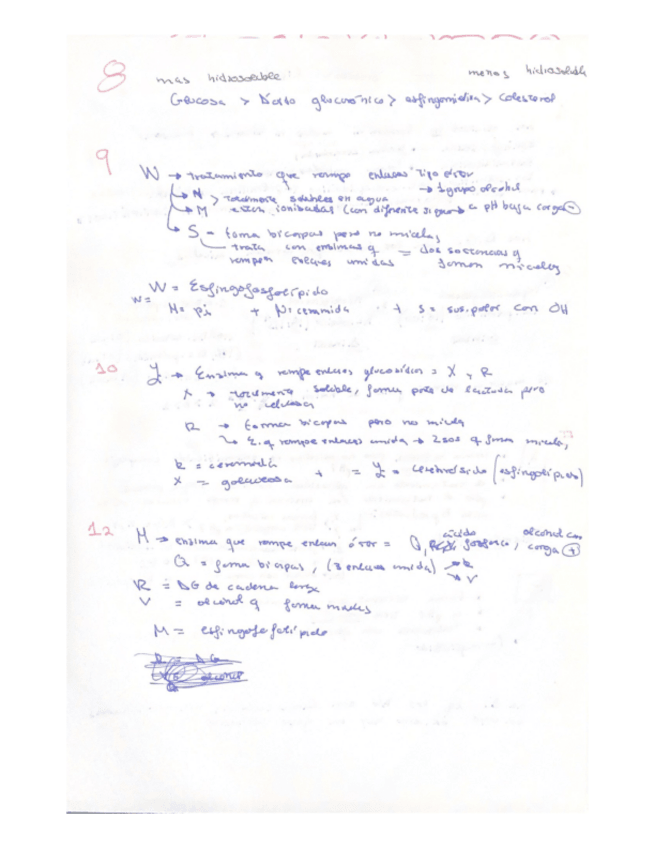 8 mas hidrosoluble menos hidrosoluble
Glucosa > Ácido glucurónico > esfingomielina > Colesterol
9 W → tratamiento que rompe enlaces tipo éster
→ N > totalmente solubles en agua → 1 grupo alcohol
→ M estan ionizadas (con diferente signo → a pH baja carga ⊖
→ S → forma bicapas pero no micelas
trata con enzimas q = dos sustancias q
rompen enlaces amidas forman micelas
W = Esfingofosfolípido
W = M = pi + N = ceramida + S = sus. polar con OH
10 Z → Enzima q rompe enlaces glucosídicos = X y R
X → totalmente soluble, forma parte de lactosa pero
no celulosa
R → forma bicapas pero no micela
↳ E. q rompe enlaces amida → 2 sus q forma micelas,
R = ceramida + = Z = cerebrósido (esfingolípido)
X = galactosa
12 M → enzima que rompe enlaces éster = Q, ácido fosforico, alcohol con carga ⊕
Q = forma bicapas, (3 enlaces amida) → R
→ V
R = AG de cadena larga
V = alcohol q forma micelas
M = esfingofosfolípido